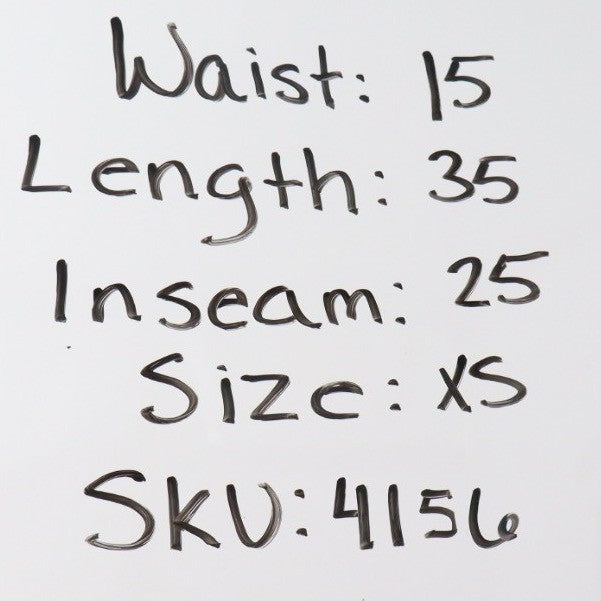 Waist: 15
Length: 35
Inseam: 25
Size: XS
SKU: 4156